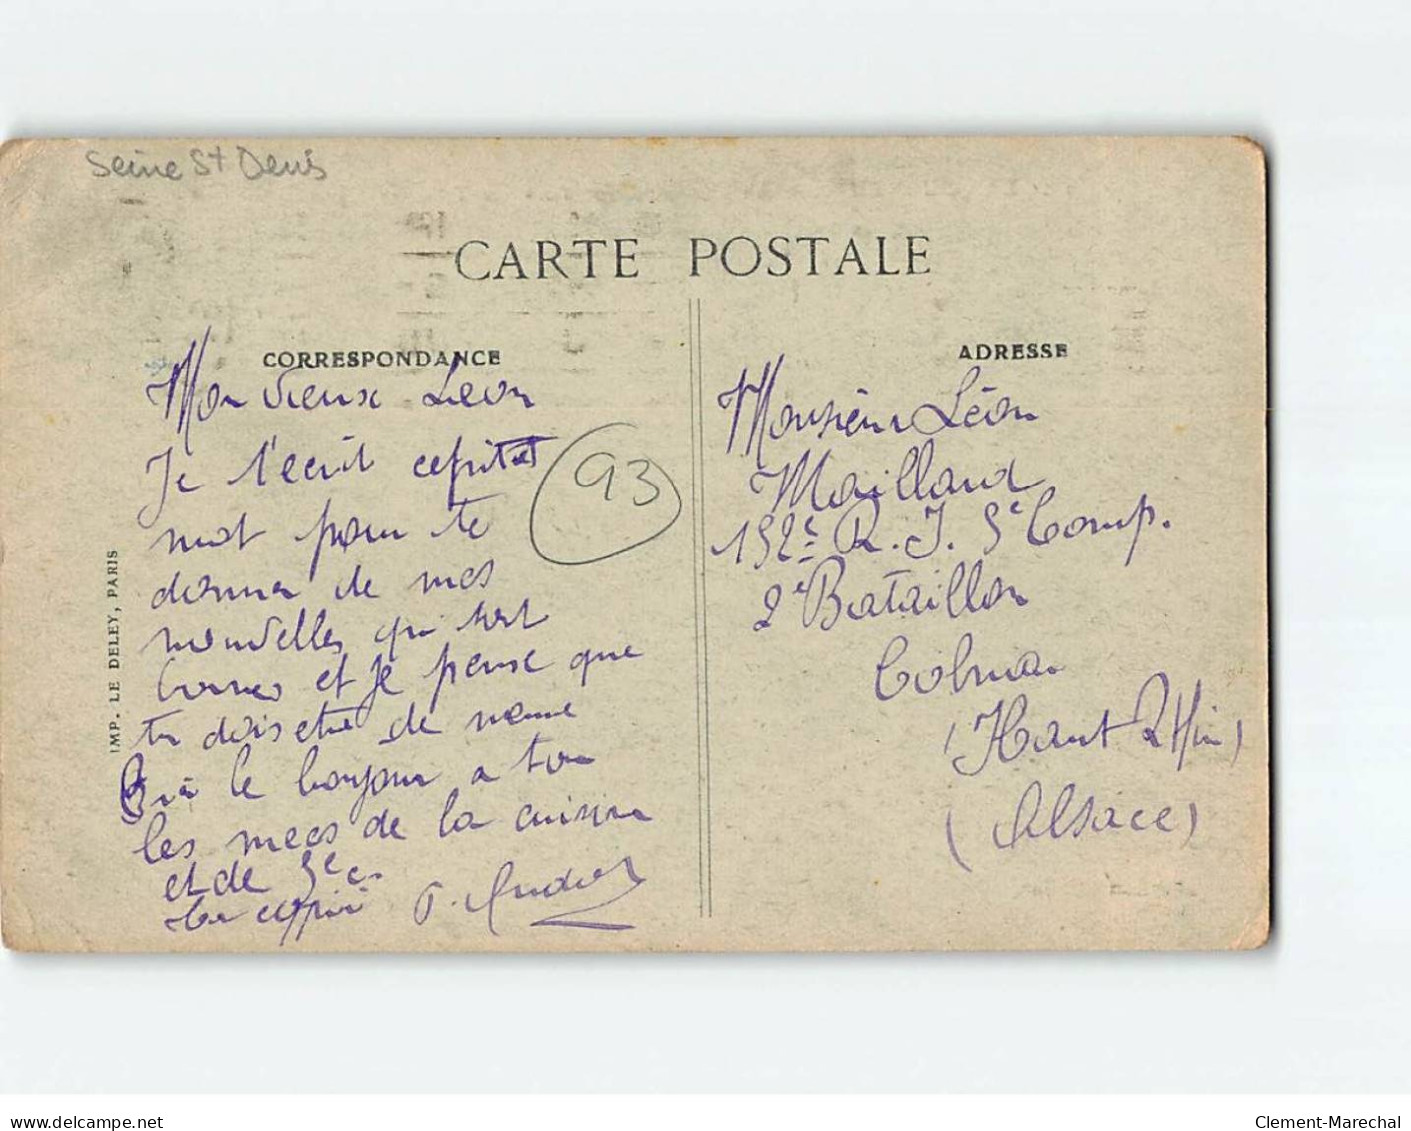 Seine St Denis
CARTE POSTALE
CORRESPONDANCE
Mon vieux Leon
Je t'ecrit cepitet
mot pour te
donner de mes
nouvelles qui sont
bonnes et je pense que
tu dois etre de meme
le bonjour a tou
les mecs de la cuisine
et de 5e
P.
93
IMP. LE DELEY, PARIS
ADRESSE
Monsieur Léon
Maillard
152e R. I. 5e Comp.
2e Bataillon
Colmar
(Haut Rhin)
(Alsace)
delcampe.net
Clement-Marechal